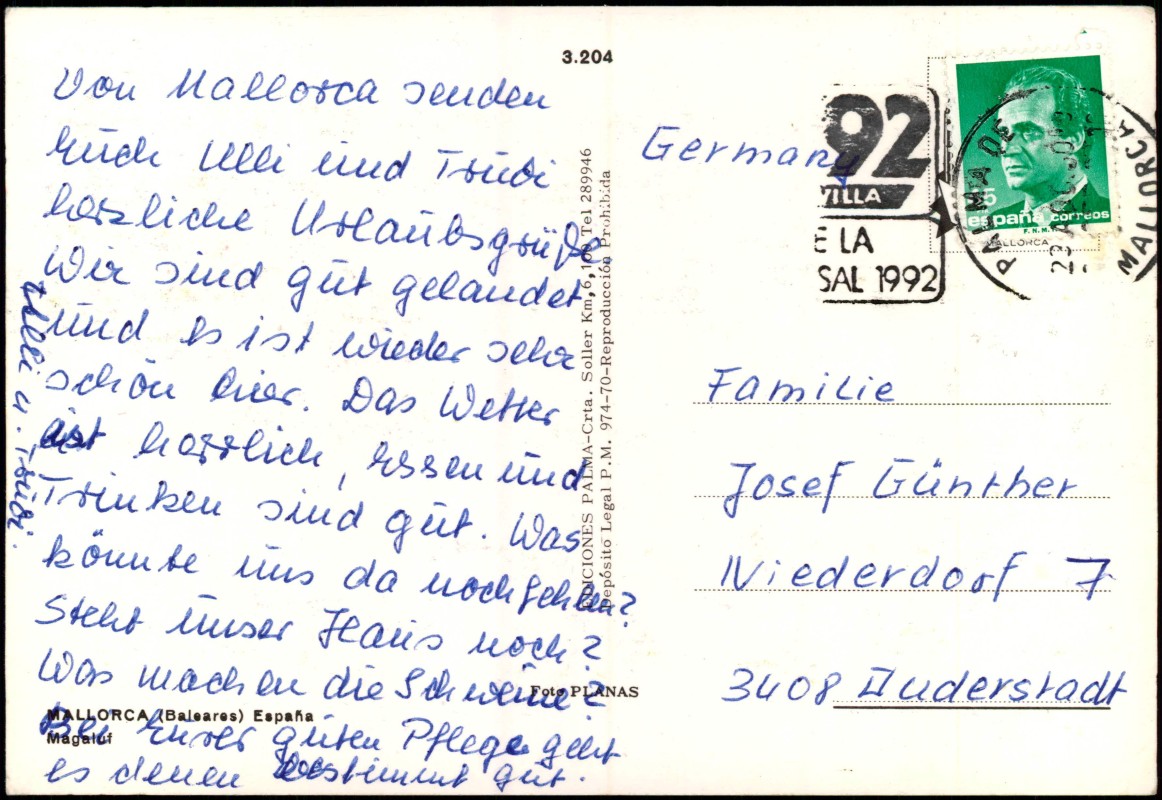 3.204
Von Mallorca senden
Euch Ulli und Trudi
herzliche Urlaubsgrüße
Wir sind gut gelandet
und es ist wieder sehr
schön hier. Das Wetter
ist herrlich, Essen und
Trinken sind gut. Was
könnte uns da noch fehlen?
Steht unser Haus noch?
Was machen die Schweine?
Bei Eurer guten Pflege geht
es denen bestimmt gut.
Ulli u. Trudi.
MALLORCA (Baleares) España
Magaluf
Foto PLANAS
EDICIONES PALMA-Crta. Soller Km, 6,100 Tel 289946
Depósito Legal P.M. 974-70-Reproducción Prohibida
Germany
92
VILLA
E LA
SAL 1992
PALMA DE
MALLORCA
España correos
F.N.M.T.
MALLORCA
Familie
Josef Günther
Niederdorf 7
3408 Duderstadt